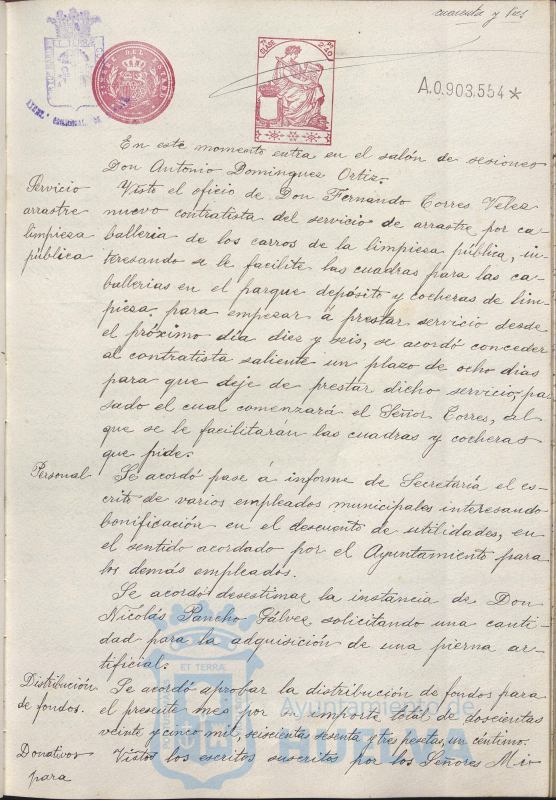 cuarenta y tres
A.0.903.554*
En este momento entra en el salón de sesiones
Don Antonio Domínguez Ortiz.
Servicio
arrastre
limpieza
pública
Visto el oficio de Don Fernando Corres Velez
nuevo contratista del servicio de arrastre por ca-
balleria de los carros de la limpiesa pública, in-
teresando se le facilite las cuadras para las ca-
ballerias en el parque depósito y cocheras de lim-
piesa, para empesar á prestar servicio desde
el próximo día diez y seis, se acordó conceder
al contratista saliente un plazo de ocho días
para que deje de prestar dicho servicio, pa-
sado el cual comenzará el Señor Corres, al
que se le facilitarán las cuadras y cocheras
que pide.
Personal
Se acordó pase á informe de Secretaría el es-
crito de varios empleados municipales interesando
bonificación en el descuento de utilidades, en
el sentido acordado por el Ayuntamiento para
los demás empleados.
Se acordó desestimar la instancia de Don
Nicolás Pancho Gálvez solicitando una canti-
dad para la adquisición de una pierna ar-
tificial.
Distribución
de fondos.
Se acordó aprobar la distribución de fondos para
el presente mes por un importe total de doscientas
veinte y cinco mil, seiscientas sesenta y tres pesetas, un céntimo.
Donativos
para
Vistos los escritos suscritos por los Señores Mir
ET TERRA
Ayuntamiento de
HUELVA